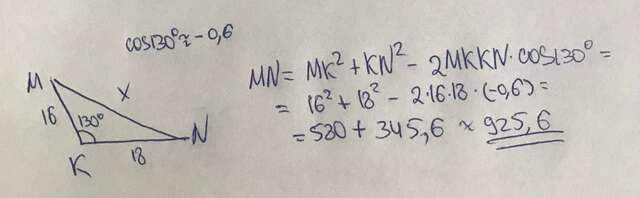 cos130°≈ -0,6
M
x
16
130°
K
18
N
MN = MK² + KN² - 2MKKN·cos130° =
= 16² + 18² - 2·16·18·(-0,6) =
= 580 + 345,6 ≈ 925,6